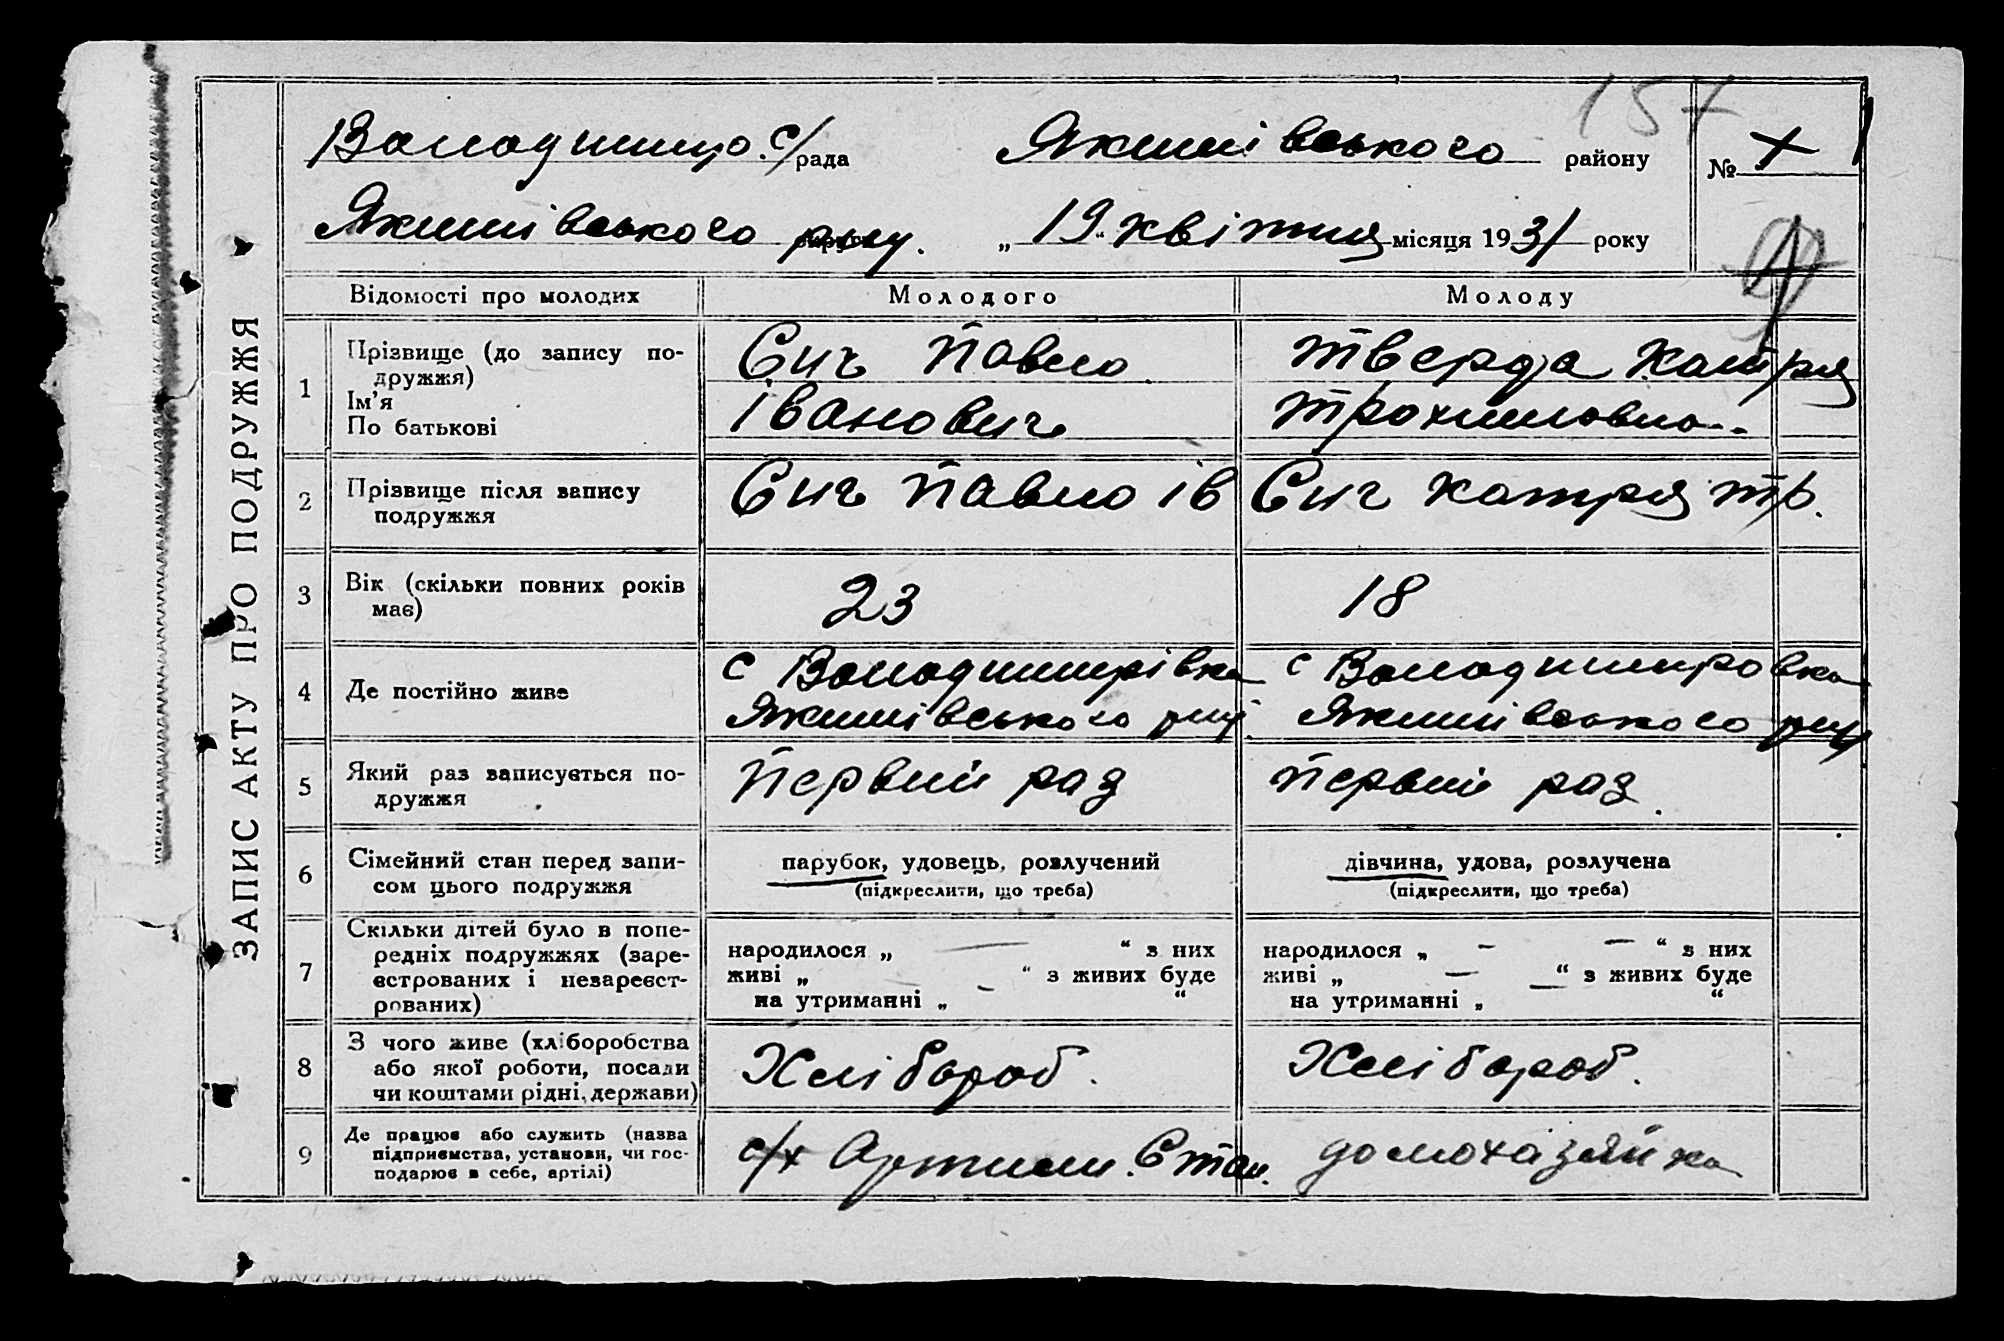 ЗАПИС АКТУ ПРО ПОДРУЖЖЯ
157
Володимиро. с/рада Якимівського району № 7
Якимівського р-ну. „19“ квітня місяця 1931 року
Відомості про молодих Молодого Молоду
1 Прізвище (до запису по-
дружжя)
Ім’я
По батькові
Сич Павло
Іванович
Тверда Катря
Трохимовна.
2 Прізвище після запису
подружжя
Сич Павло Ів
Сич Катря Тр.
3 Вік (скільки повних років
має)
23
18
4 Де постійно живе
с Володимирівка
Якимівського р-ну.
с Володимировка
Якимівського р-ну
5 Який раз записується по-
дружжя
Первий раз
Первий раз.
6 Сімейний стан перед запи-
сом цього подружжя
парубок, удовець, розлучений
(підкреслити, що треба)
дівчина, удова, розлучена
(підкреслити, що треба)
7 Скільки дітей було в попе-
редніх подружжях (заре-
єстрованих і незареєст-
рованих)
народилося „ — “ з них
живі „ — “ з живих буде
на утриманні „ “
народилося „ — — “ з них
живі „ — — “ з живих буде
на утриманні „ “
8 З чого живе (хліборобства
або якої роботи, посади
чи коштами рідні, держави)
Хлібороб.
Хлібороб.
9 Де працює або служить (назва
підприємства, установи, чи гос-
подарює в себе, артілі)
с/х Артили. Стал.
домохазяйка